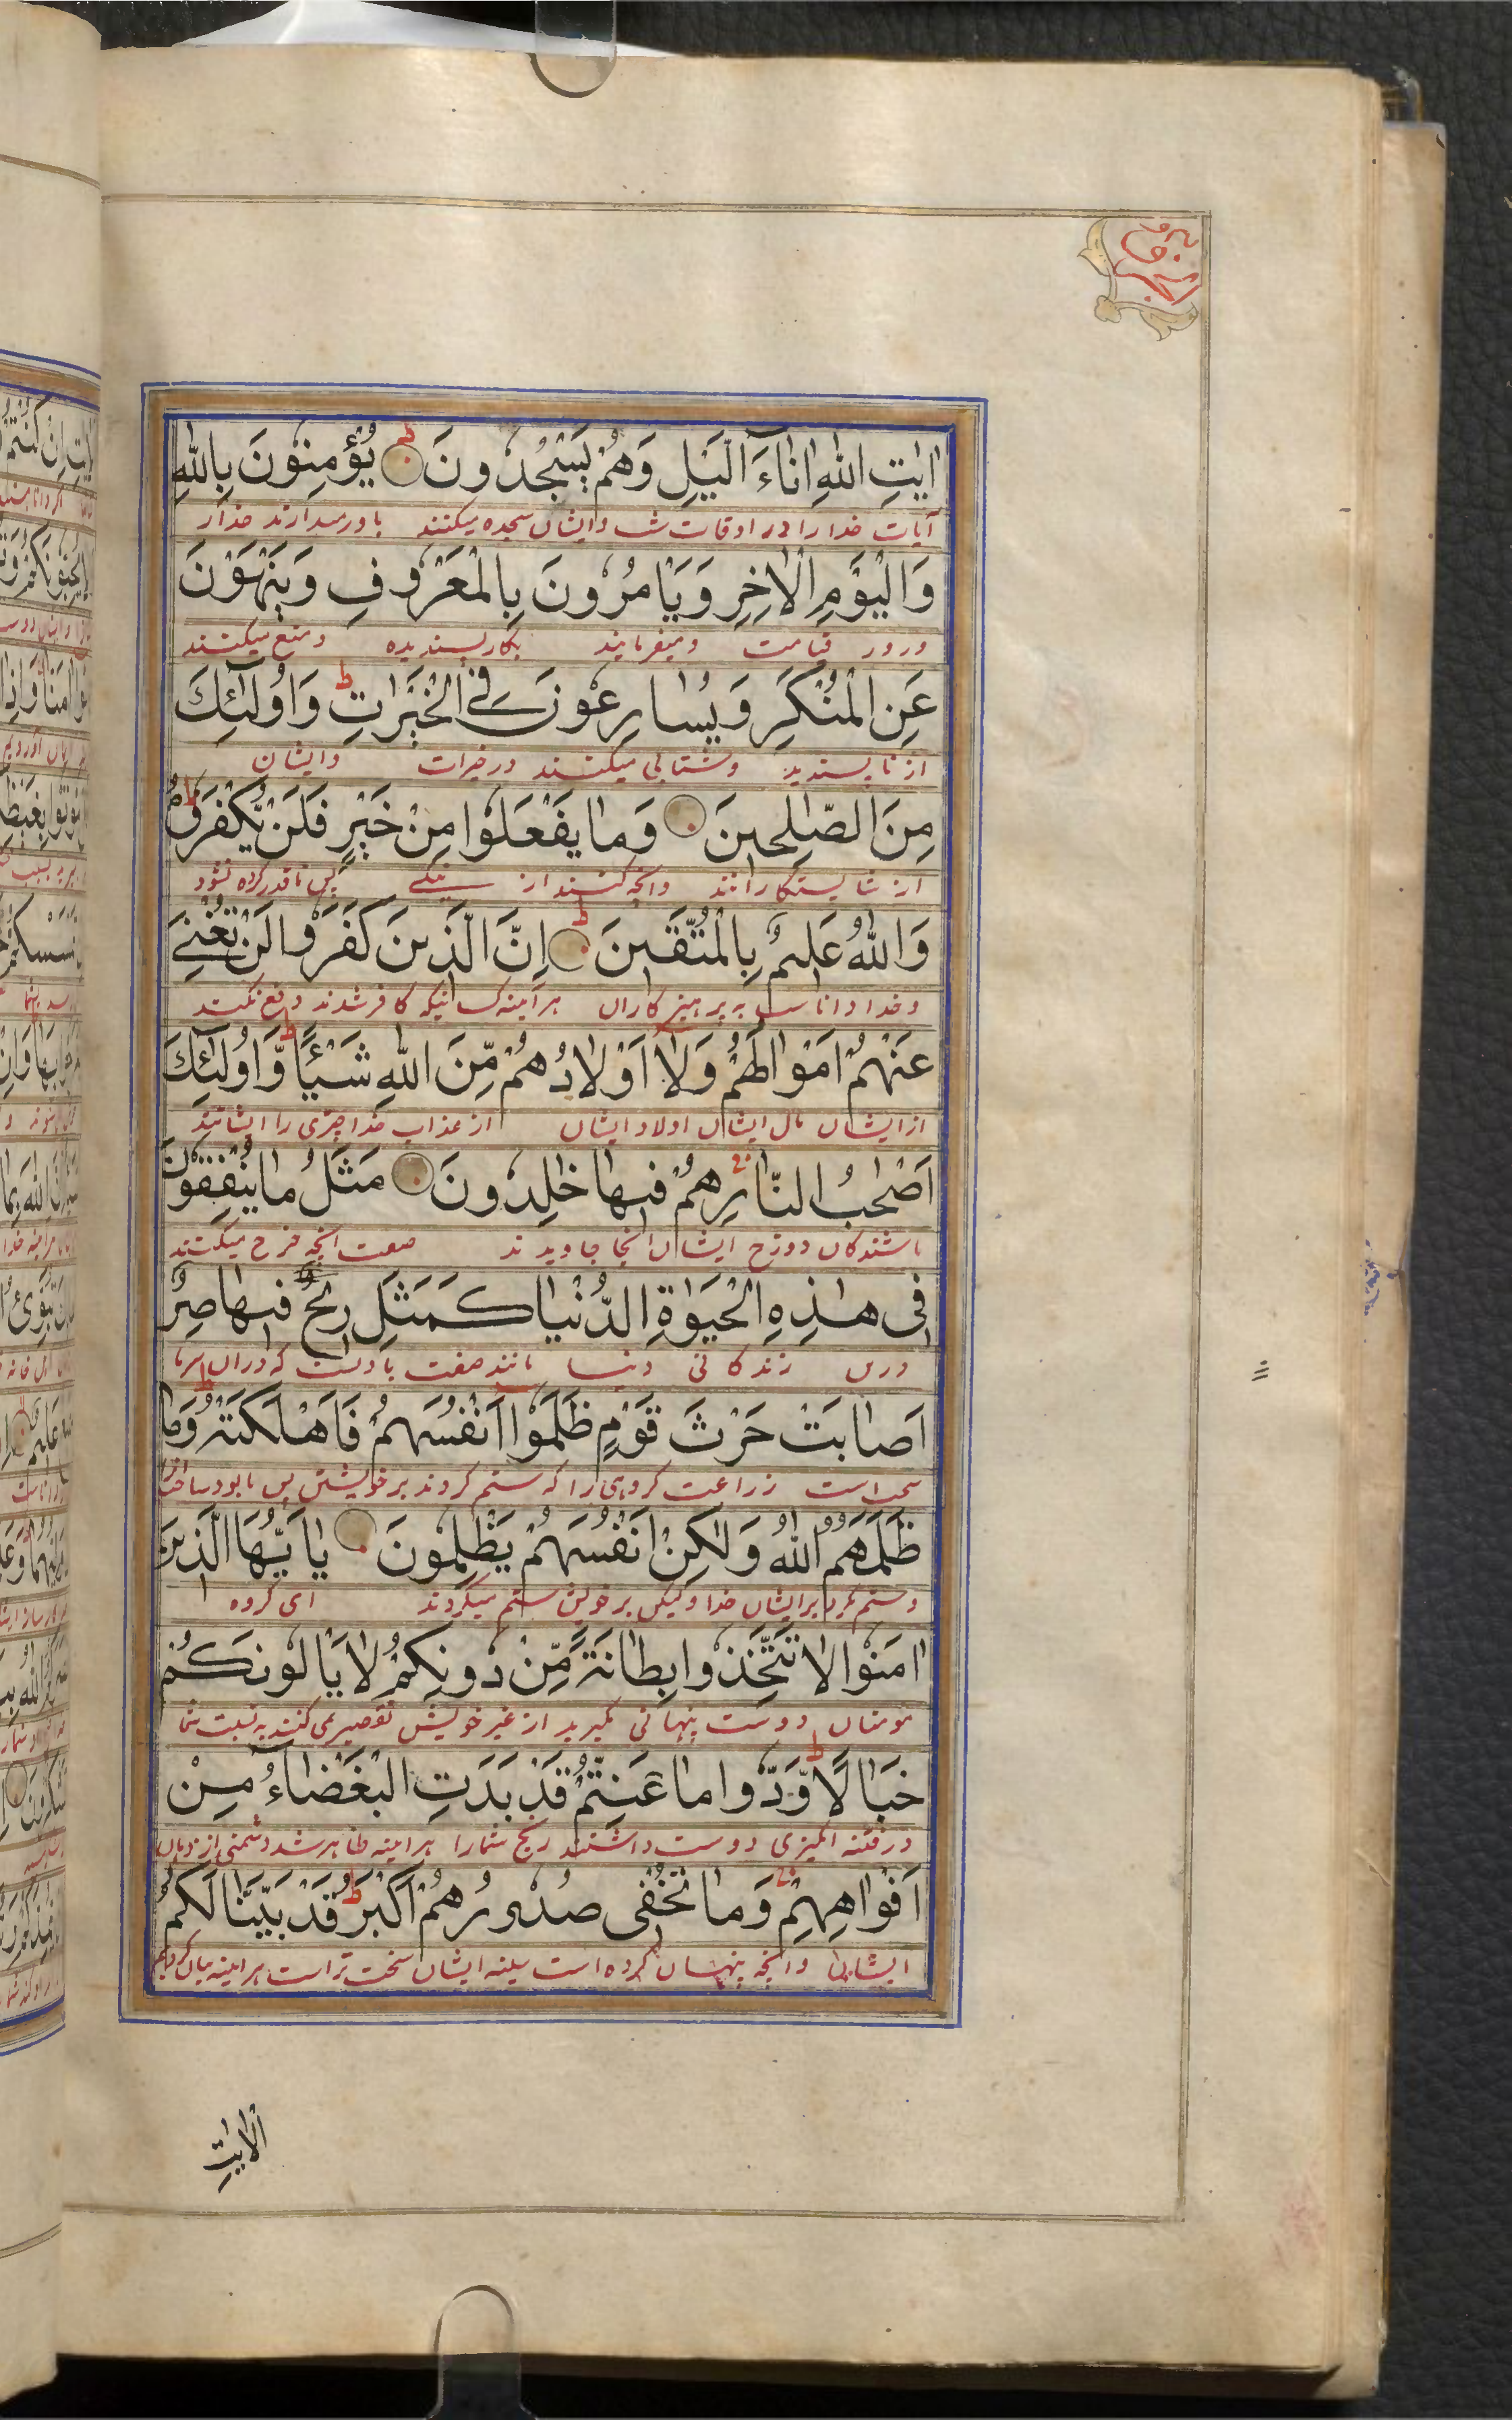 اٰيٰتِ اللهِ اٰنَآءَ الَّيْلِ وَهُمْ يَسْجُدُونَ ۝ يُؤْمِنُونَ بِاللهِ
آیات خدا را در اوقات شب و ایشان سجده میکنند باور میدارند خدا را
وَالْيَوْمِ الْاٰخِرِ وَيَامُرُونَ بِالْمَعْرُوفِ وَيَنْهَوْنَ
و روز قیامت و میفرمایند بکار پسندیده و منع میکنند
عَنِ الْمُنْكَرِ وَيُسَارِعُونَ فِي الْخَيْرَاتِ ط وَاُولٰٓئِكَ
از ناپسندید و شتابی میکنند در خیرات و ایشان
مِنَ الصّٰلِحِينَ ۝ وَمَا يَفْعَلُوا مِنْ خَيْرٍ فَلَنْ يُّكْفَرُوهُ ط
از شایستگارانند و آنچه کنند از نیکے پس ناقدر کرده نشود
وَاللهُ عَلِيمٌ بِالْمُتَّقِينَ ۝ ط اِنَّ الَّذِينَ كَفَرُوا لَنْ تُغْنِيَ
و خدا داناست به پرهیزکاران هر آینه کسانیکه کافر شدند دفع نکند
عَنْهُمْ اَمْوَالُهُمْ وَلَا اَوْلَادُهُمْ مِّنَ اللهِ شَيْئًا ط وَّاُولٰٓئِكَ
از ایشان مال ایشان اولاد ایشان از عذاب خدا چیزی را ایشانند
اَصْحٰبُ النَّارِ هُمْ فِيهَا خٰلِدُونَ ۝ مَثَلُ مَا يُنْفِقُونَ
باشندکان دوزخ ایشان آنجا جاویدند صفت آنچه خرج میکنند
فِي هٰذِهِ الْحَيٰوةِ الدُّنْيَا كَمَثَلِ رِيحٍ فِيهَا صِرٌّ
درین زندکانی دنیا مانند صفت بادست که در آن سرما
اَصَابَتْ حَرْثَ قَوْمٍ ظَلَمُوا اَنْفُسَهُمْ فَاَهْلَكَتْهُ ط وَمَا
سخت است زراعت کروهی را که ستم کردند بر خویشتن پس نابود ساخت آنرا
ظَلَمَهُمُ اللهُ وَلٰكِنْ اَنْفُسَهُمْ يَظْلِمُونَ ۝ يٰاَيُّهَا الَّذِينَ
و ستم نکرد بر ایشان خدا و لیکن بر خویش ستم میکردند ای کروه
اٰمَنُوا لَا تَتَّخِذُوا بِطَانَةً مِّنْ دُونِكُمْ لَا يَالُونَكُمْ
مومنان دوست پنهانی مکیرید از غیر خویش تقصیر نمی کنند به نسبت شما
خَبَالًا ط وَّدُّوا مَا عَنِتُّمْ قَدْ بَدَتِ الْبَغْضَآءُ مِنْ
در فتنه انکیزی دوست داشتند رنج شما را هر آینه ظاهر شد دشمنی از دهان
اَفْوَاهِهِمْ وَمَا تُخْفِي صُدُورُهُمْ اَكْبَرُ ط قَدْ بَيَّنَّا لَكُمُ
ایشان و آنچه پنهان کرده است سینه ایشان سخت تر است هر آینه بیان کردیم
الْاٰيٰتِ